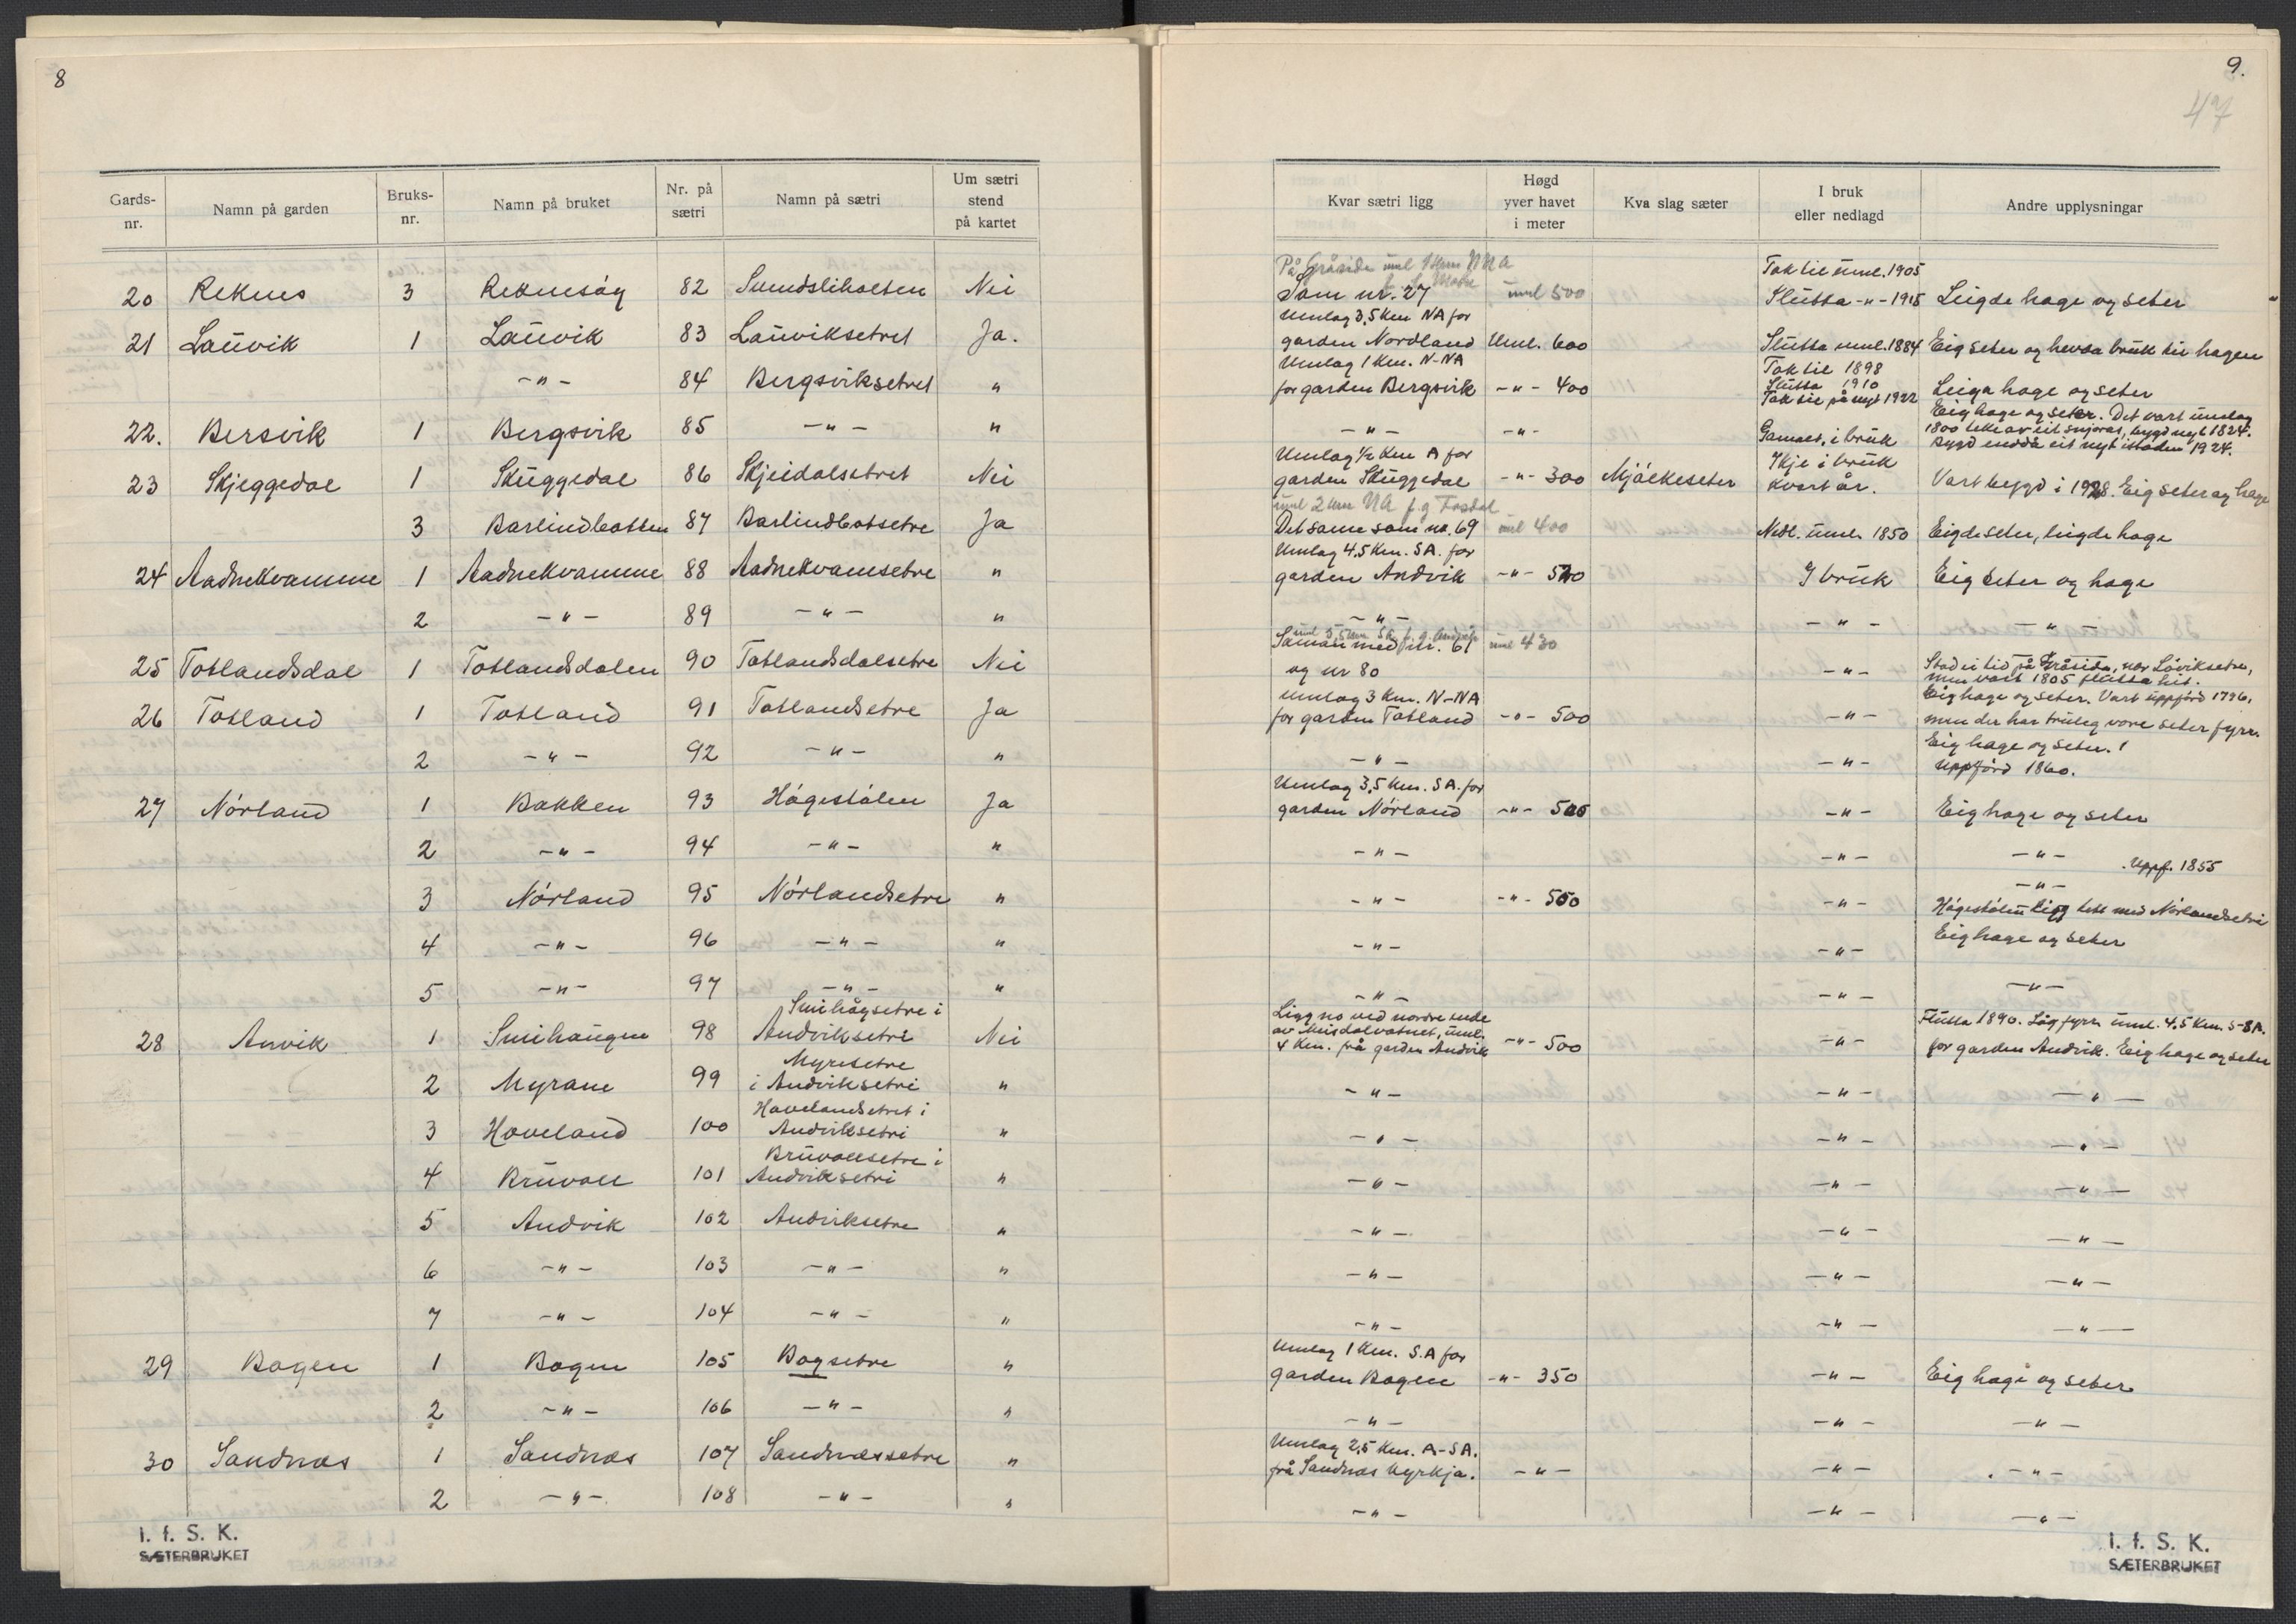 8
Gards-nr. Namn på garden Bruks-nr. Namn på bruket Nr. på sætri Namn på sætri Um sætri stend på kartet
20 Reknes 3 Reknesøy 82 Nei
21 Lauvik 1 Lauvik 83 Lauviksetret Ja.
-"- 84 Bergsviksetret "
22. Bersvik 1 Bergsvik 85 -"- "
23 Skjeggedal 1 Skuggedal 86 Skjeidalsetret Nei
3 Barlindbotten 87 Barlindbotsetre Ja
24 Aadnekvamme 1 Aadnekvamme 88 Aadnekvamsetre "
2 -"- 89 -"- "
25 Totlandsdal 1 Totlandsdalen 90 Totlandsdalsetre Nei
26 Totland 1 Totland 91 Totlandsetre Ja
2 -"- 92 -"- "
27 Nórland 1 Bakken 93 Hágestólen Ja
2 -"- 94 -"- "
3 Nórland 95 Nórlandsetre "
4 -"- 96 -"- "
5 -"- 97 -"- "
Smihaugsetre i
28 Anvik 1 Smihaugen 98 Andviksetri Nei
Myresetre
2 Myrane 99 i Andviksetri "
Hovelandsetret i
3 Hoveland 100 Andviksetri "
Bruvollsetre i
4 Bruvoll 101 Andviksetri "
5 Andvik 102 Andviksetre "
6 -"- 103 -"- "
7 -"- 104 -"- "
29 Bogen 1 Bogen 105 Bogsetre "
2 -"- 106 -"- "
30 Sandnes 1 Sandnes 107 Sandnessetre "
2 -"- 108 -"- "
I. f. S. K.
SÆTERBRUKET
9.
47
Kvar sætri ligg Høgd yver havet i meter Kva slag sæter I bruk eller nedlagd Andre upplysningar
På Gråsida uml 1 km NNA Tok til uml. 1905
Som nr. 27 uml 500 Slutta -"- 1915 Leigde hage og seter
Umlag 3,5 km NA for
garden Nordland Uml. 600 Slutta uml. 1884 Eig seter og hevda bruk til hagen
Umlag 1 km. N-NA Tok til 1898
for garden Bergsvik -"- 400 Slutta 1910 Leiga hage og seter
Tok til på nyt 1922 Eig hage og seter. Det vart umlag
-"- -"- Gamal, i bruk 1800 teke av eit snjoras, bygd nyt 1824.
Bygd endda eit nyt istaden 1924.
Umlag ½ km A for Ikje i bruk
garden Skuggedal -"- 300 Mjólkeseter kvart år. Vart bygd i 1928. Eig seter og hage
uml 2 km NA f. g Fossdal
Det same som nr. 69 uml 400 Nedl. uml. 1850 Eigde seter, leigde hage
Umlag 4,5 km. SA. for
garden Andvik -"- 520 I bruk Eig seter og hage
-"- -"- -"-
uml 3,5 km SA f. g. Andvik
Saman med nr. 61 uml 430
og nr 80 -"- Stod ei tid på Gråsida, nær Lóviksetre,
men vart 1805 flutta hit.
Umlag 3 km. N-NA Eig hage og seter. Vart uppførd 1796,
for garden Totland -"- 500 -"- men der har truleg vore seter fyrr.
-"- -"- Eig hage og seter.
Uppførd 1860.
Umlag 3,5 km. SA. for
garden Nórland -"- 500 -"- Eig hage og seter
-"- -"- -"- Uppf. 1855
-"- -"- 500 -"- -"-
Hágestólen ligg tett med Nórlandsetri
-"- -"- Eig hage og seter
-"- -"- -"-
Ligg no ved nordre ende
av Misdalvatnet, uml. Flutta 1890. Låg fyrr uml. 4,5 km. S-SA.
4 km. frå garden Andvik -"- 500 -"- for garden Andvik. Eig hage og seter
-"- -"- -"-
-"- -"- -"-
-"- -"- -"-
-"- -"- -"-
-"- -"- -"-
-"- -"- -"-
Umlag 1 km. S.A for
garden Bogen -"- 350 -"- Eig hage og seter
-"- -"- -"-
Umlag 2,5 km. A-SA.
frå Sandnes kyrkja. -"- -"- -"-
-"- -"- -"-
I. f. S. K.
SÆTERBRUKET